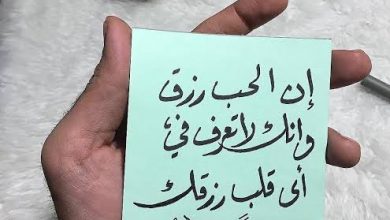 إن الحب رزق
وانك لا تعرف في
أى قلب رزقك